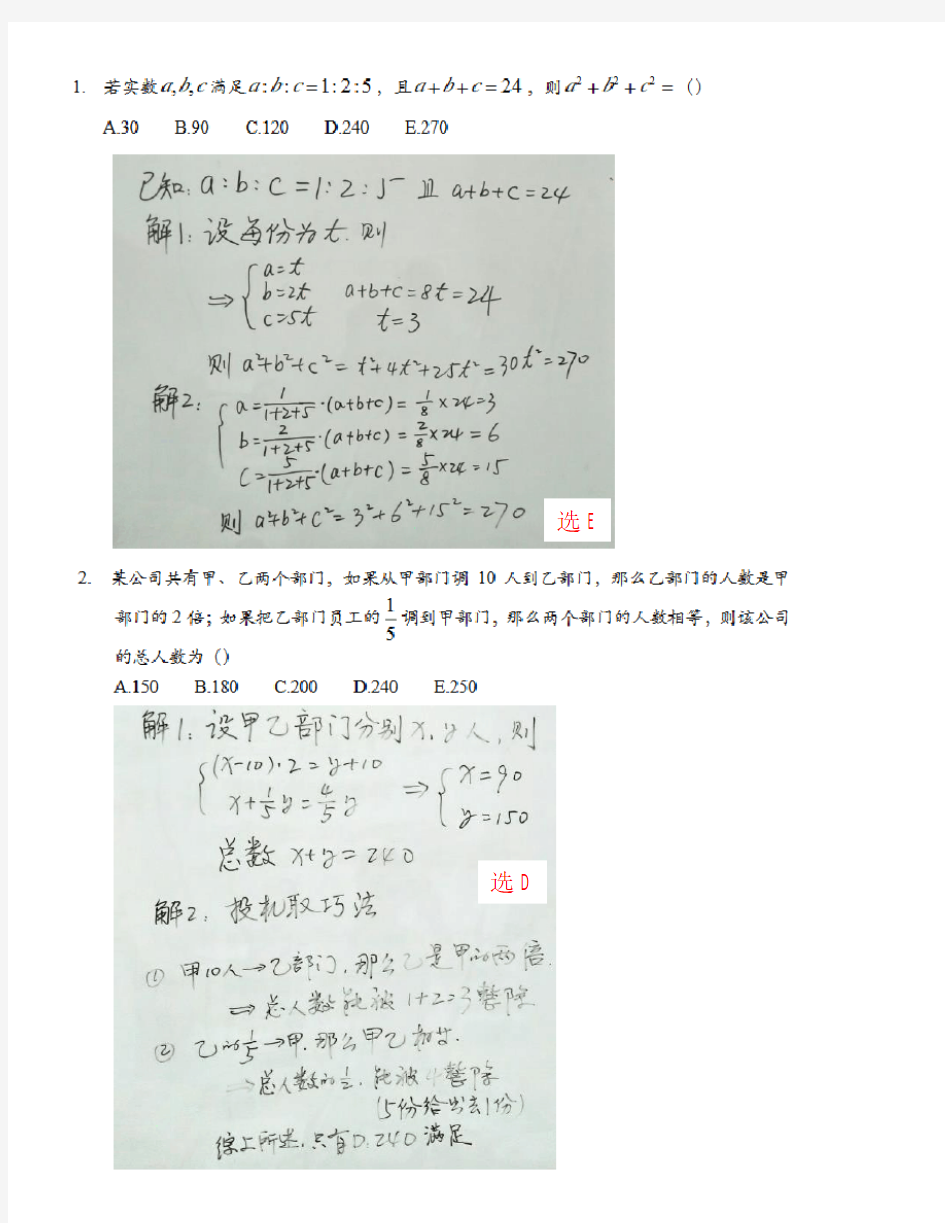 1. 若实数a,b,c满足a:b:c=1:2:5，且a+b+c=24，则a²+b²+c²=（）
A.30 B.90 C.120 D.240 E.270
已知: a:b:c=1:2:5 且 a+b+c=24
解1: 设每份为t. 则
⇒ { a=t
b=2t a+b+c=8t=24
c=5t t=3
则 a²+b²+c²=t²+4t²+25t²=30t²=270
解2: { a=1/(1+2+5)·(a+b+c)=1/8×24=3
b=2/(1+2+5)·(a+b+c)=2/8×24=6
c=5/(1+2+5)·(a+b+c)=5/8×24=15
则 a²+b²+c²=3²+6²+15²=270
选E
2. 某公司共有甲、乙两个部门，如果从甲部门调 10 人到乙部门，那么乙部门的人数是甲
部门的2倍；如果把乙部门员工的1/5调到甲部门，那么两个部门的人数相等，则该公司
的总人数为（）
A.150 B.180 C.200 D.240 E.250
解1: 设甲乙部门分别x,y人, 则
{ (x-10)·2=y+10 ⇒ { x=90
x+1/5y=4/5y y=150
总数 x+y=240
选D
解2: 投机取巧法
① 甲10人→乙部门, 那么乙是甲的两倍.
⇒ 总人数能被1+2=3整除
② 乙的1/5→甲, 那么甲乙相等.
⇒ 总人数的1/2, 能被4整除
(5份给出去1份)
综上所述, 只有D.240满足